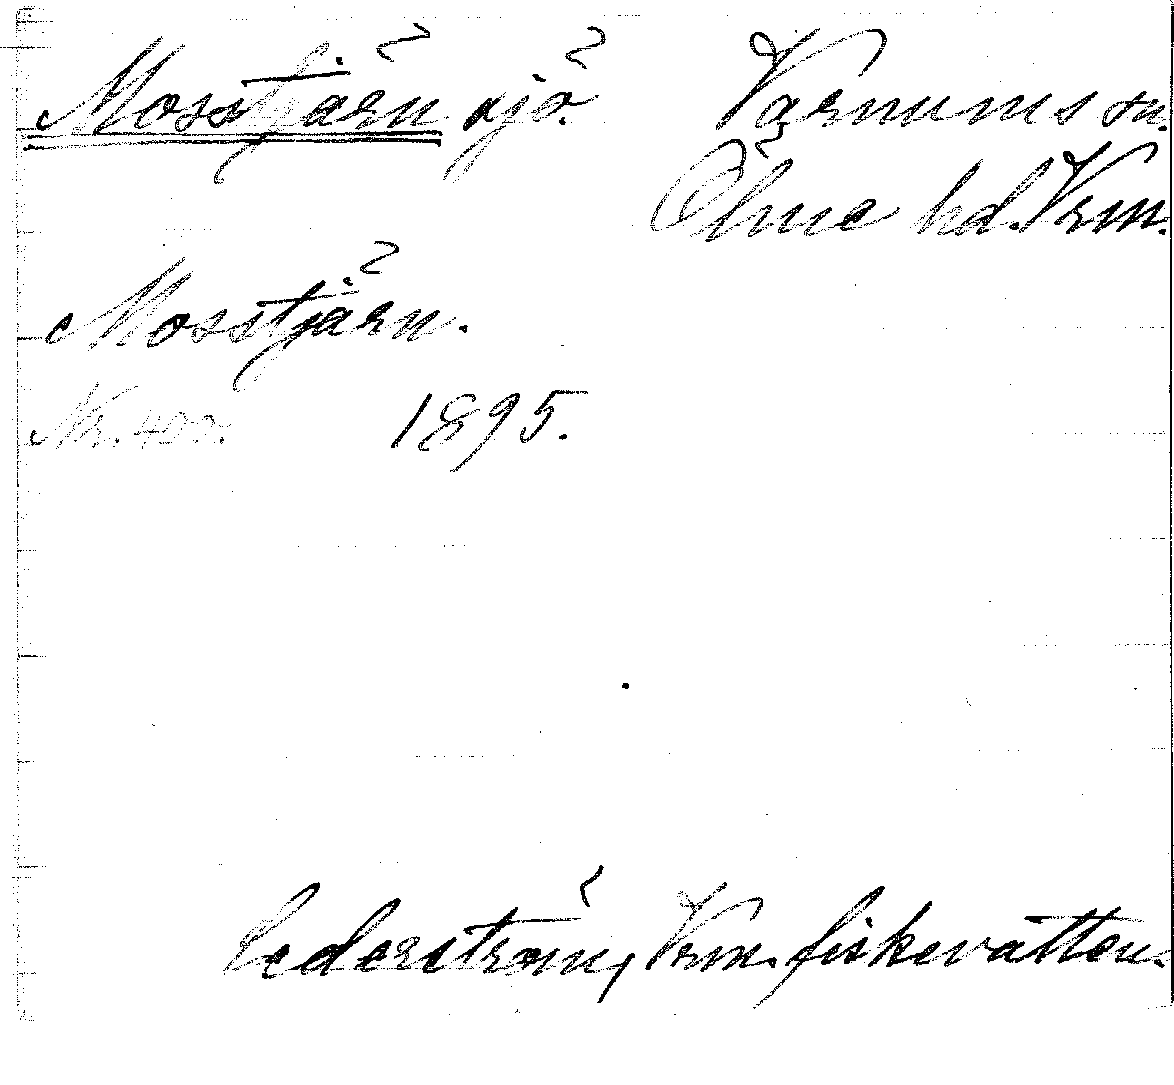 Mosstjärn sjö. Varnums sn.
Ölme hd. Vrm.
Mosstjärn.
Nr. 400. 1895.
Cederström, Vrm. fiskevatten.